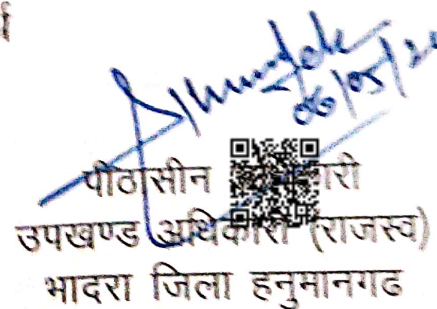 06/05/2
पीठासीन
उपखण्ड अधिकारी (राजस्व)
भादरा जिला हनुमानगढ